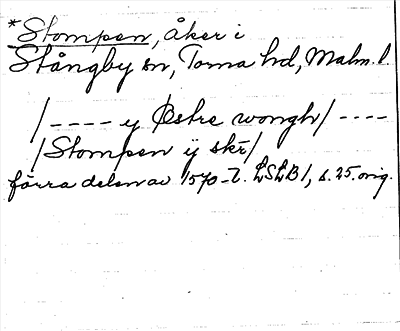 *Stompen, åker i
Stångby sn, Torna hd, Malm. l.
/---- y Østre wongh/ ----
/Stompen ÿ skr/
förra delen av 1570-t. LSLB 1, s. 25. orig.